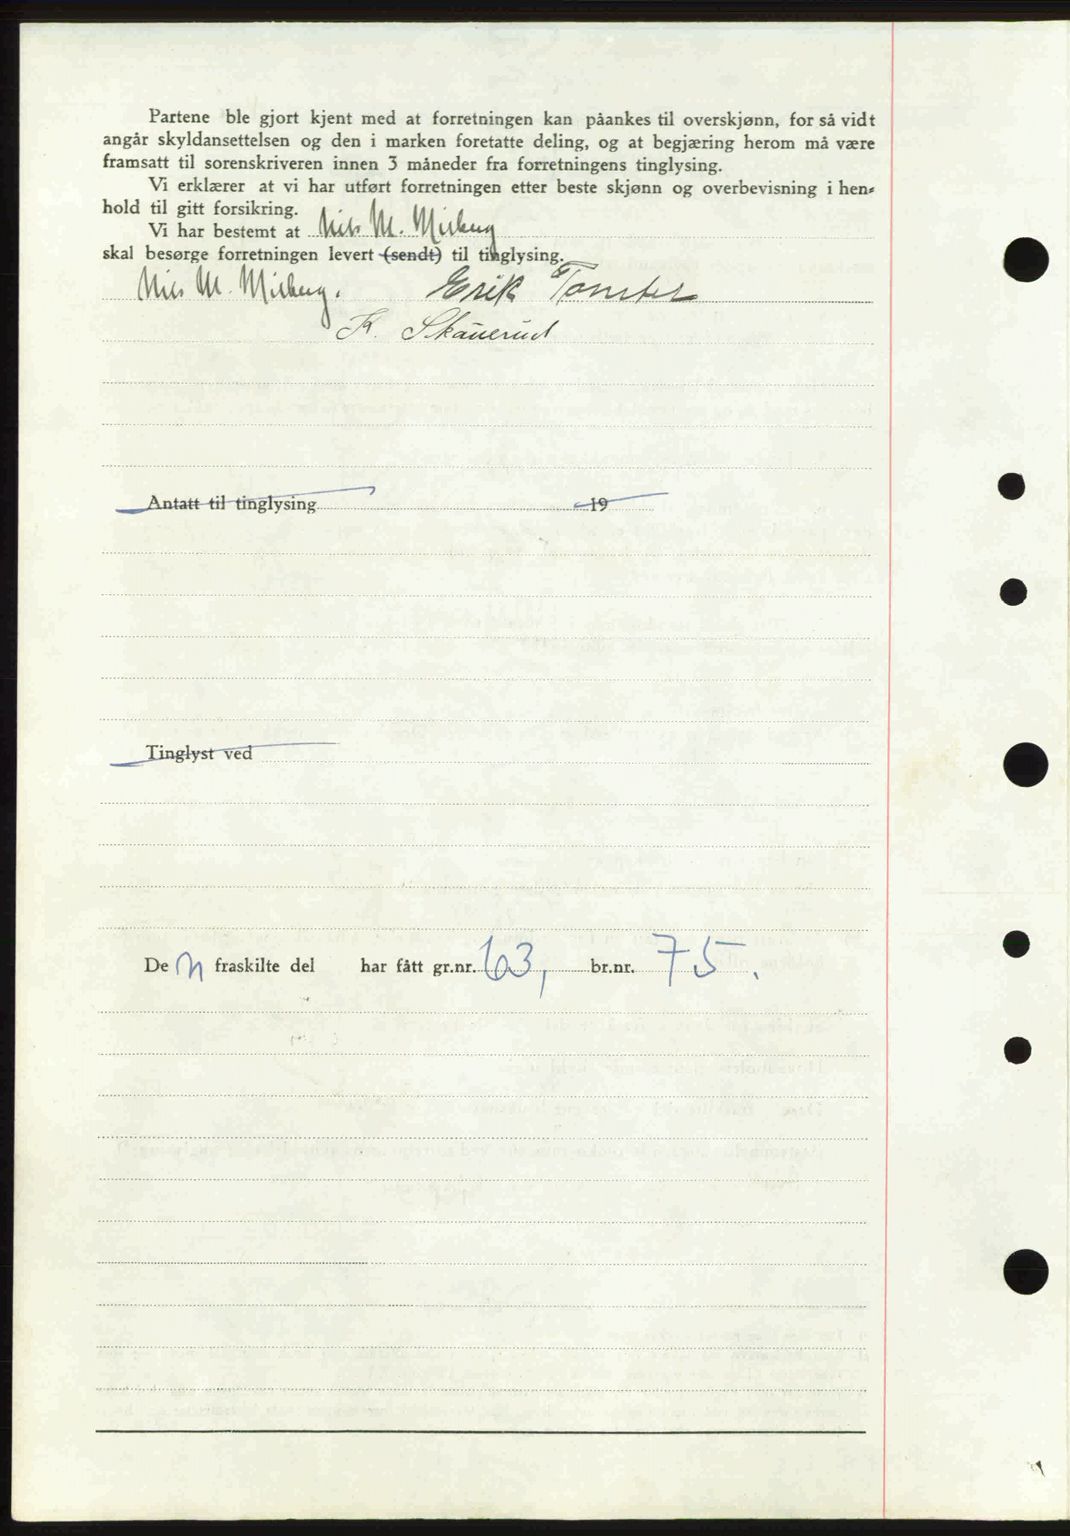 Partene ble gjort kjent med at forretningen kan påankes til overskjønn, for så vidt
angår skyldansettelsen og den i marken foretatte deling, og at begjæring herom må være
framsatt til sorenskriveren innen 3 måneder fra forretningens tinglysing.
Vi erklærer at vi har utført forretningen etter beste skjønn og overbevisning i hen-
hold til gitt forsikring.
Vi har bestemt at Nils M. Misberg
skal besørge forretningen levert (sendt) til tinglysing.
Nils M. Misberg. Erik Tomter
K. Skauerud
Antatt til tinglysing 19
Tinglyst ved
De n fraskilte del har fått gr.nr. 63, br.nr. 75.